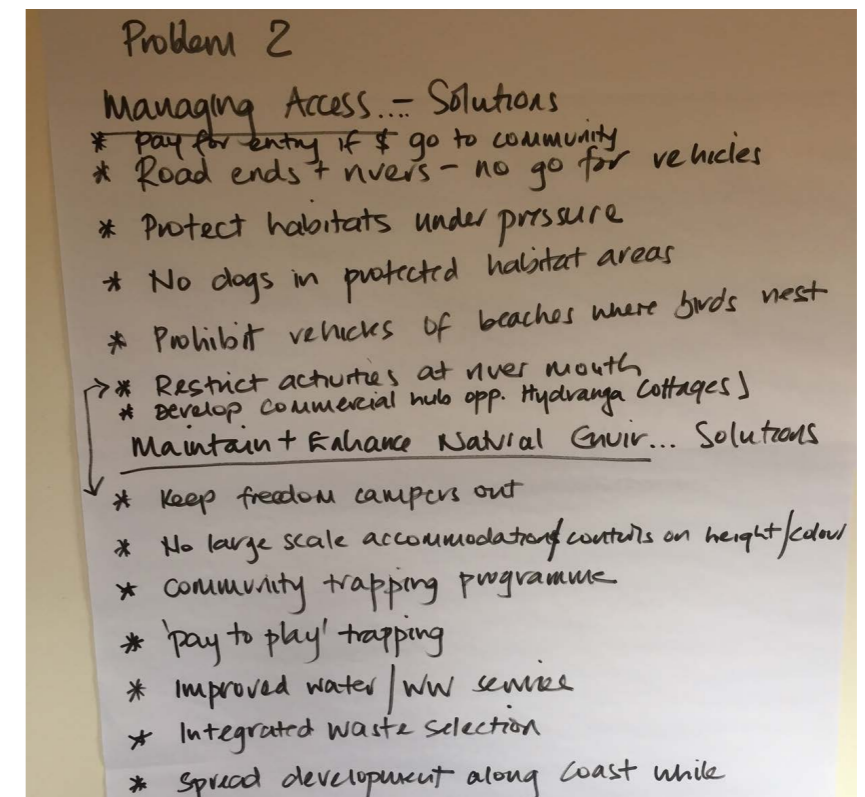 Problem 2
Managing Access...- Solutions
* Pay for entry if $ go to community
* Road ends + rivers - no go for vehicles
* Protect habitats under pressure
* No dogs in protected habitat areas
* Prohibit vehicles of beaches where birds nest
* Restrict activities at river mouth
* Develop commercial hub opp. Hydranga Cottages
Maintain + Enhance Natural Envir... Solutions
* Keep freedom campers out
* No large scale accommodation/controls on height/colour
* Community trapping programme
* 'pay to play' trapping
* Improved water/WW service
* Integrated waste selection
* Spread development along coast while